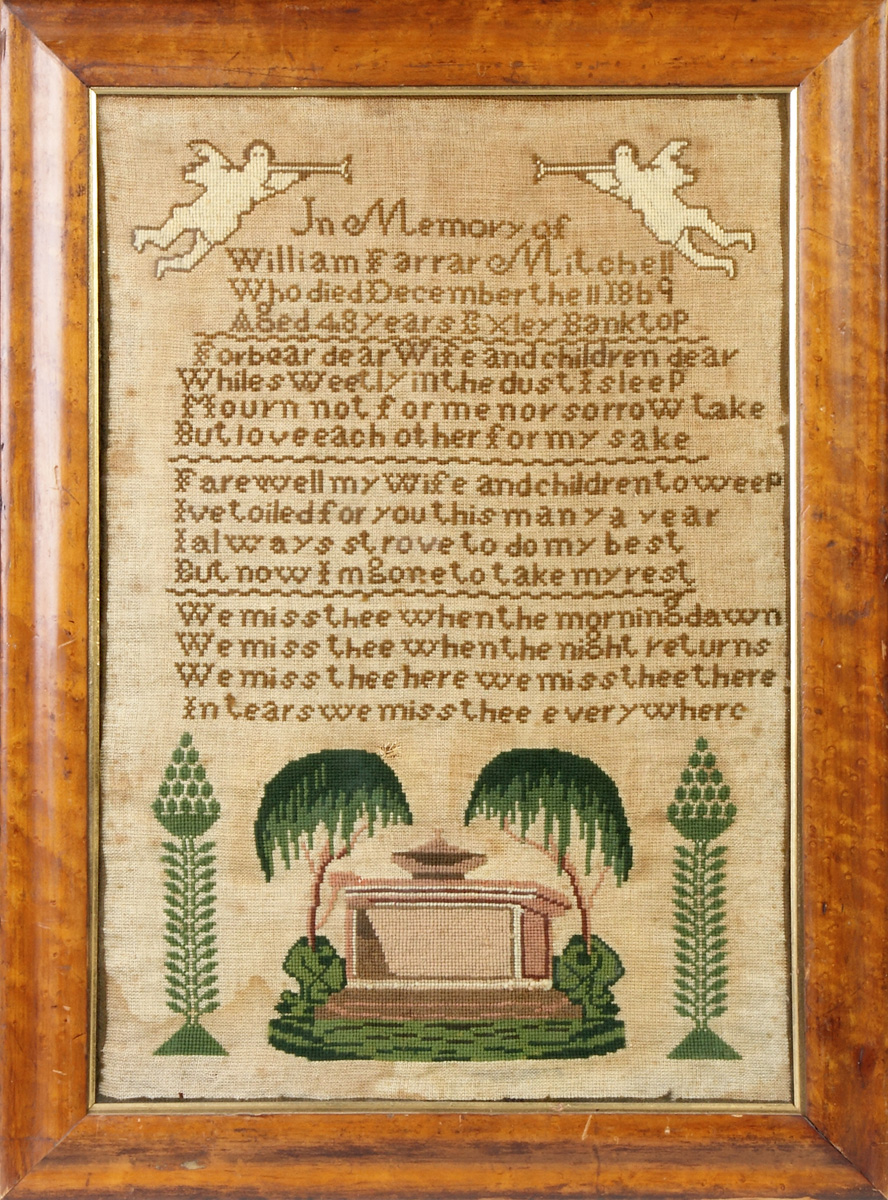 In Memory of
William Farrar Mitchell
Who died December the 11 1869
Aged 48 years Exley Bank top
Forbear dear Wife and children dear
While sweetly in the dust I sleep
Mourn not for me nor sorrow take
But love each other for my sake
Farewell my Wife and children to weep
Ive toiled for you this many a year
I always strove to do my best
But now Im gone to take my rest
We miss thee when the morning dawn
We miss thee when the night returns
We miss thee here we miss thee there
In tears we miss thee everywhere